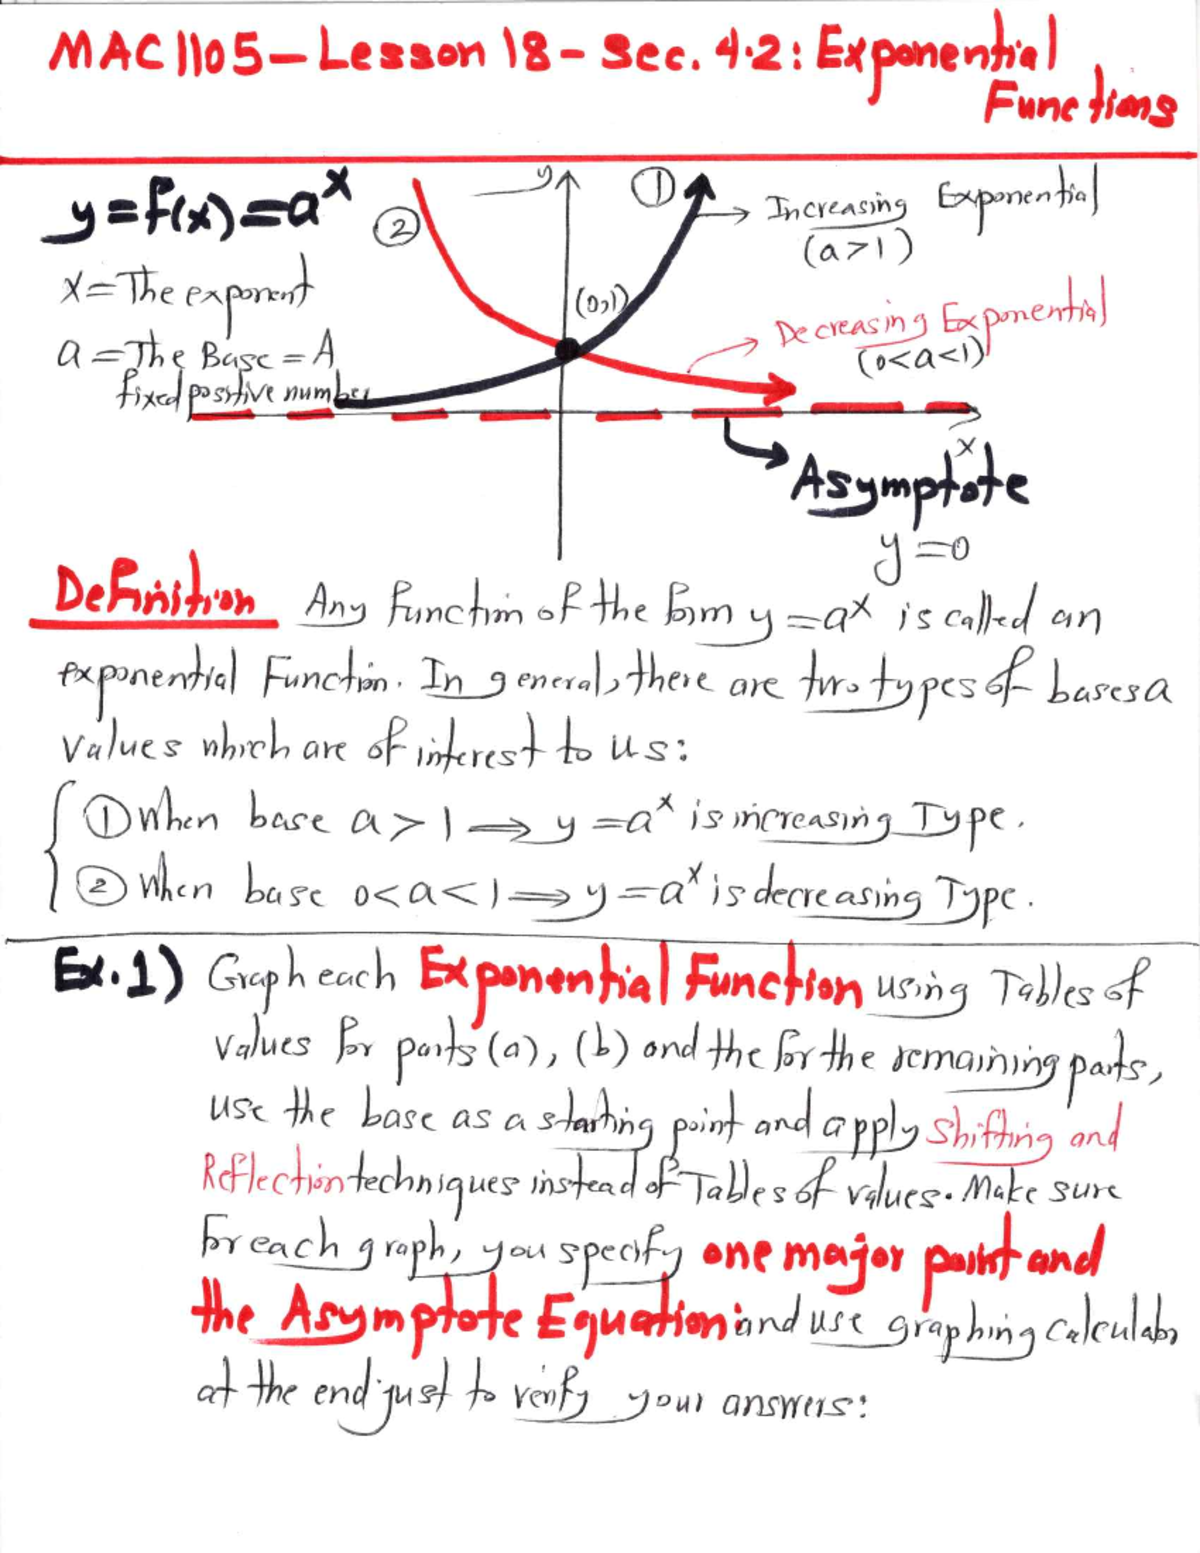 MAC1105 – Lesson 18 – Sec. 4.2: Exponential
Functions
y = f(x) = a^x
x = The exponent
a = The Base = A
fixed positive number
y
①
②
(0,1)
Increasing Exponential
(a > 1)
Decreasing Exponential
(0<a<1)
x
Asymptote
y = 0
Definition Any function of the form y = a^x is called an
exponential Function. In general, there are two types of bases a
values which are of interest to us:
① When base a > 1 ⟹ y = a^x is increasing Type.
② When base 0<a<1 ⟹ y = a^x is decreasing Type.
Ex.1) Graph each Exponential Function using Tables of
values for parts (a), (b) and the for the remaining parts,
use the base as a starting point and apply Shifting and
Reflection techniques instead of Tables of values. Make sure
for each graph, you specify one major point and
the Asymptote Equation and use graphing calculator
at the end just to verify your answers: